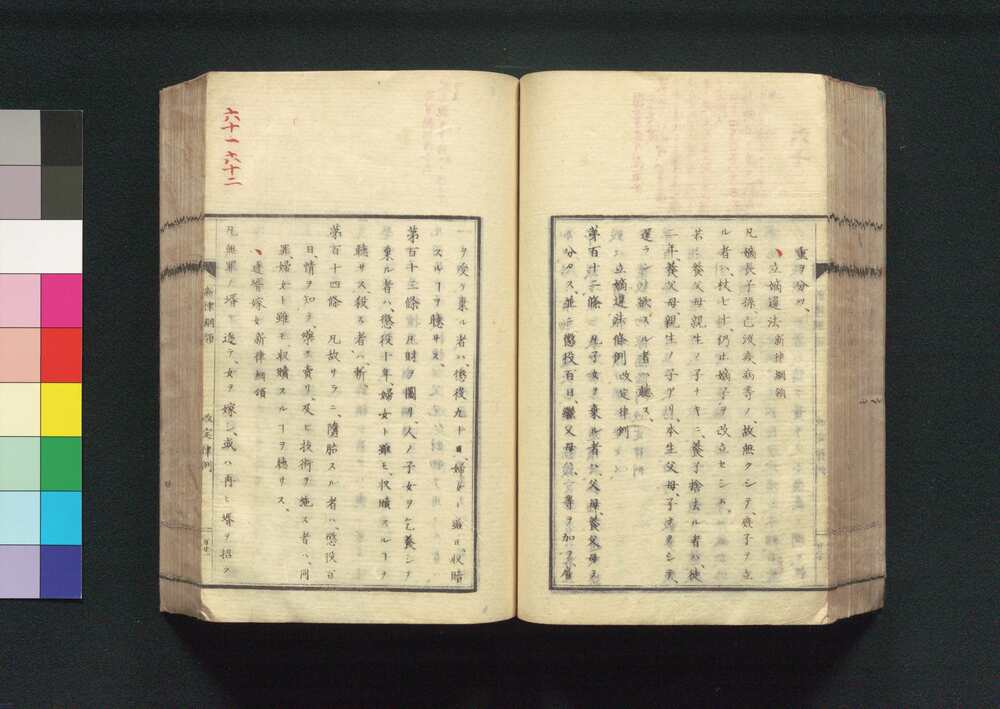 重ヲ分ツ、
立嫡違法 新律綱領
凡嫡長子孫亡没疾病等ノ故無クシテ、庶子ヲ立
ル者ハ、杖七十、仍ホ嫡子ヲ改立セシム、
若シ養父母親生ノ子ナキニ、養子捨去ル者ハ、徒
二年、養父母、親生ノ子アリ、本生父母、子
還ラント欲スル者ハ聴ス、
立嫡違法條例 改定律例
第百十二條 凡子女ヲ棄ル者ハ、父母、養父母ヲ
分タス、並ニ懲役百日、継父母ハ
ヲ受ケ棄ル者ハ、懲役九十日、婦女ト雖モ、収贖
スルヿヲ聴サス、
第百十三條 凡財ヲ圖リ、人ノ子女ヲ乞養シテ
棄ル者ハ、懲役十年、婦女ト雖モ、収贖スルヿヲ
聴サス、殺ス者ハ、斬、
第百十四條 凡故サラニ、墮胎スル者ハ、懲役百
日、情ヲ知テ薬ヲ賣リ、及ヒ技術ヲ施ス者ハ、同
罪、婦女ト雖モ、収贖スルヿヲ聴サス、
逐壻嫁女 新律綱領
凡無罪ノ壻ヲ逐テ、女ヲ嫁シ、或ハ再ヒ壻ヲ招ク
新律綱領
改定律例
六十一 六十二